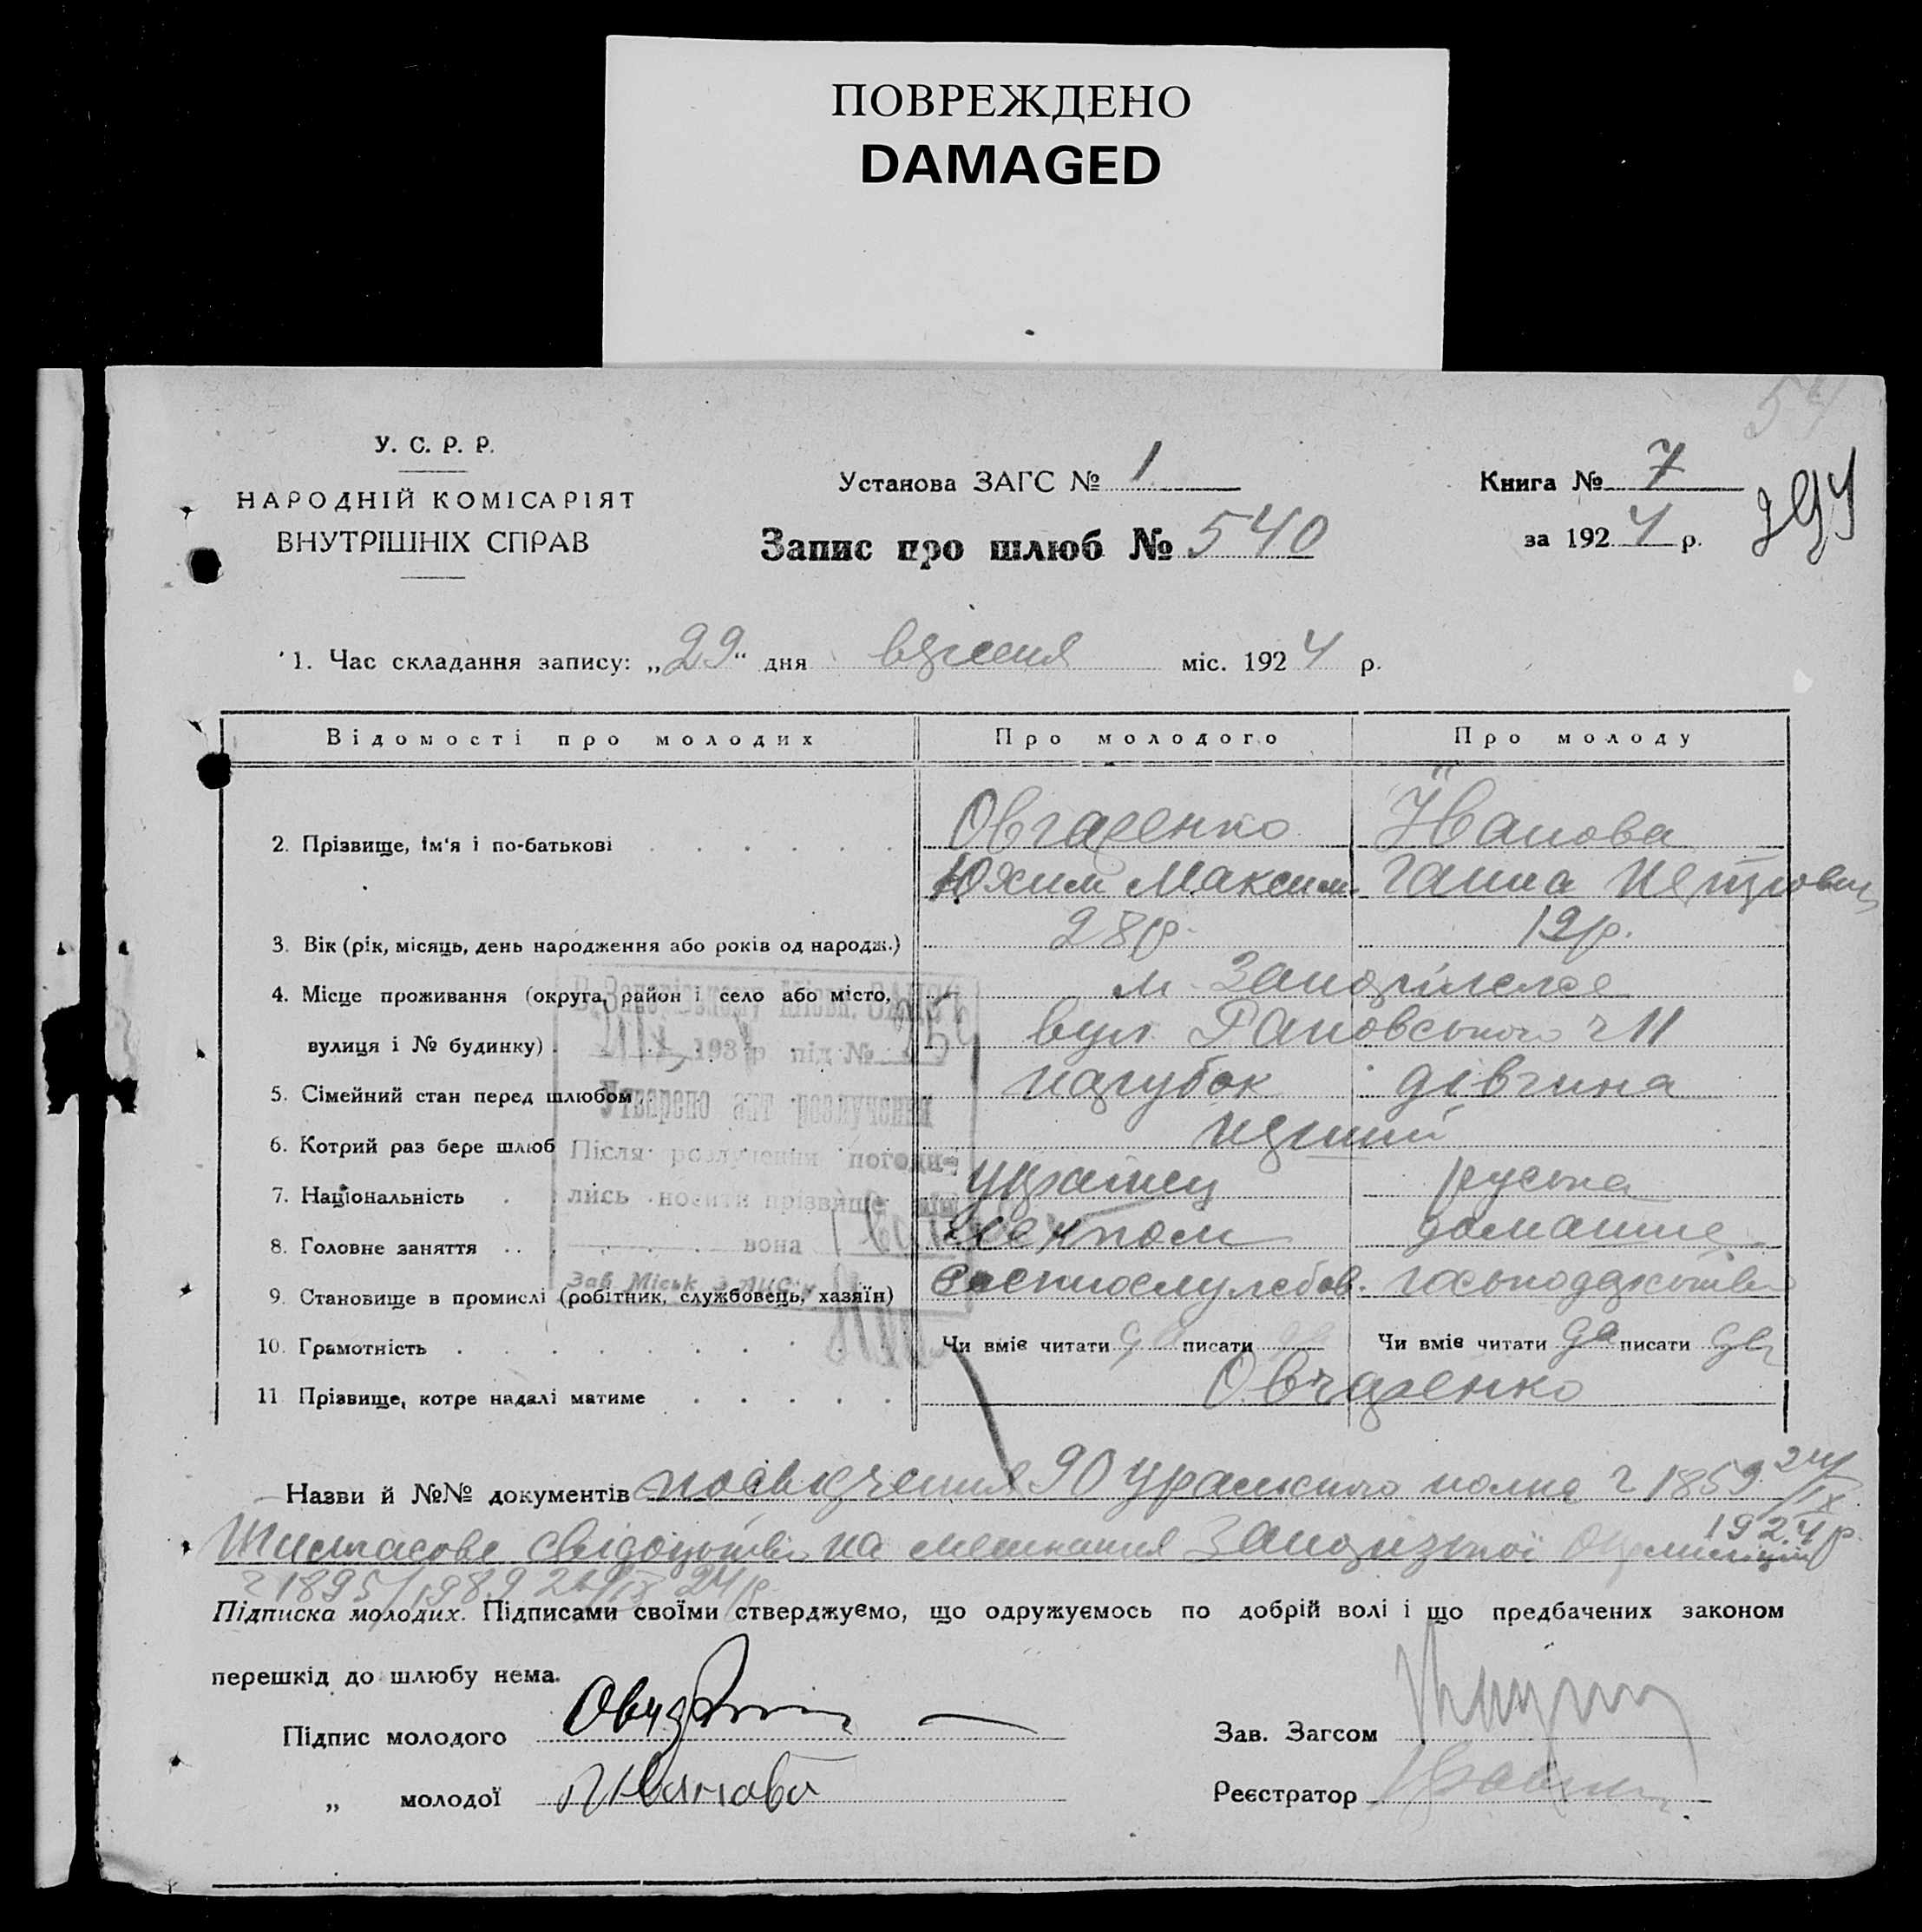 ПОВРЕЖДЕНО
DAMAGED
54
У. С. Р. Р.
НАРОДНІЙ КОМІСАРІЯТ
ВНУТРІШНІХ СПРАВ
Установа ЗАГС № 1
Запис про шлюб № 540
Книга № 7
за 1924 р.
1. Час складання запису: „29" дня вересня міс. 1924 р.
Відомості про молодих Про молодого Про молоду
2. Прізвище, ім'я і по-батькові Овчаренко Іванова
Юхим Максим. Ганна Петровн
3. Вік (рік, місяць, день народження або років од народж.) 28 р. 19 р.
4. Місце проживання (округа, район і село або місто, м. Запоріжже
вулиця і № будинку) вул. ч 11
5. Сімейний стан перед шлюбом парубок дівчина
6. Котрий раз бере шлюб перший
7. Національність українец руська
8. Головне заняття домашнє
9. Становище в промислі (робітник, службовець, хазяїн) господарство
10. Грамотність Чи вміє читати да писати да Чи вміє читати да писати да
11. Прізвище, котре надалі матиме Овчаренко
193 р під №
Утварено акт розлучення
Після розлучення погоди-
лись носити прізвище він
вона
Зав. Міськ. ЗАГС'у
Назви й №№ документів посвідчення 90 уральского полка ч 1859 24/IX
1924 р.
свідоцтво на мешкання Запорізької
ч 1895/1989 24/р.
Підписка молодих. Підписами своїми стверджуємо, що одружуємось по добрій волі і що предбачених законом
перешкід до шлюбу нема.
Підпис молодого
„ молодої Иванова
Зав. Загсом
Реєстратор